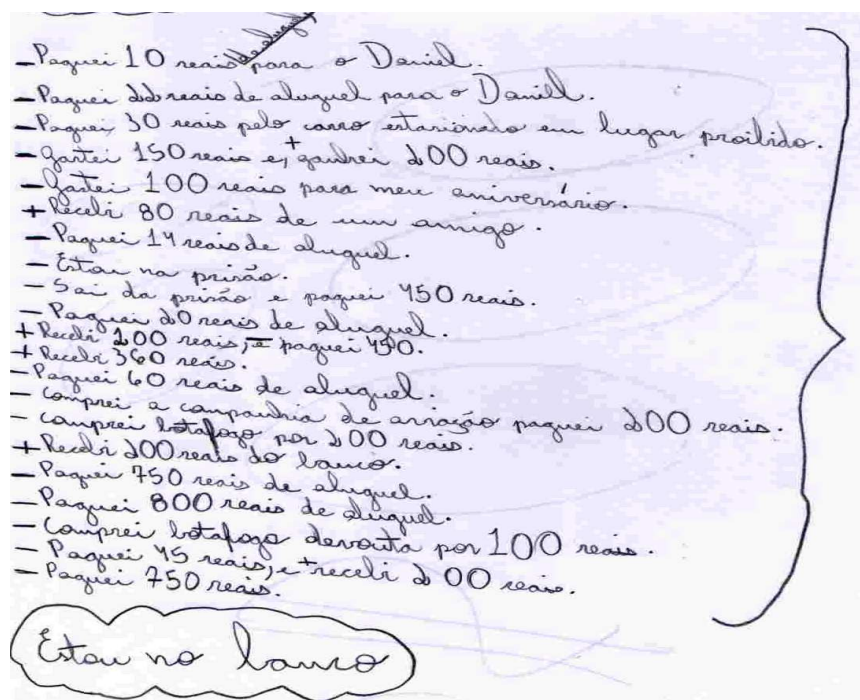 de aluguel
- Paguei 10 reais para o Daniel.
- Paguei 22 reais de aluguel para o Daniell.
- Paguei 30 reais pelo carro estacionado em lugar proibido.
- Gastei 150 reais e, + ganhei 200 reais.
- Gastei 100 reais para meu aniversário.
+ Recebi 80 reais de um amigo.
- Paguei 14 reais de aluguel.
- Estou na prisão.
- Sai da prisão e paguei 450 reais.
- Paguei 20 reais de aluguel.
+ Recebi 200 reais, - e paguei 450.
+ Recebi 360 reais.
- Paguei 60 reais de aluguel.
- Comprei a companhia de paguei 200 reais.
- Comprei botafogo por 200 reais.
+ Recebi 200 reais do banco.
- Paguei 750 reais de aluguel.
- Paguei 800 reais de aluguel.
- Comprei botafogo por 100 reais.
- Paguei 45 reais, e + recebi 200 reais.
- Paguei 750 reais.
Estou no banco